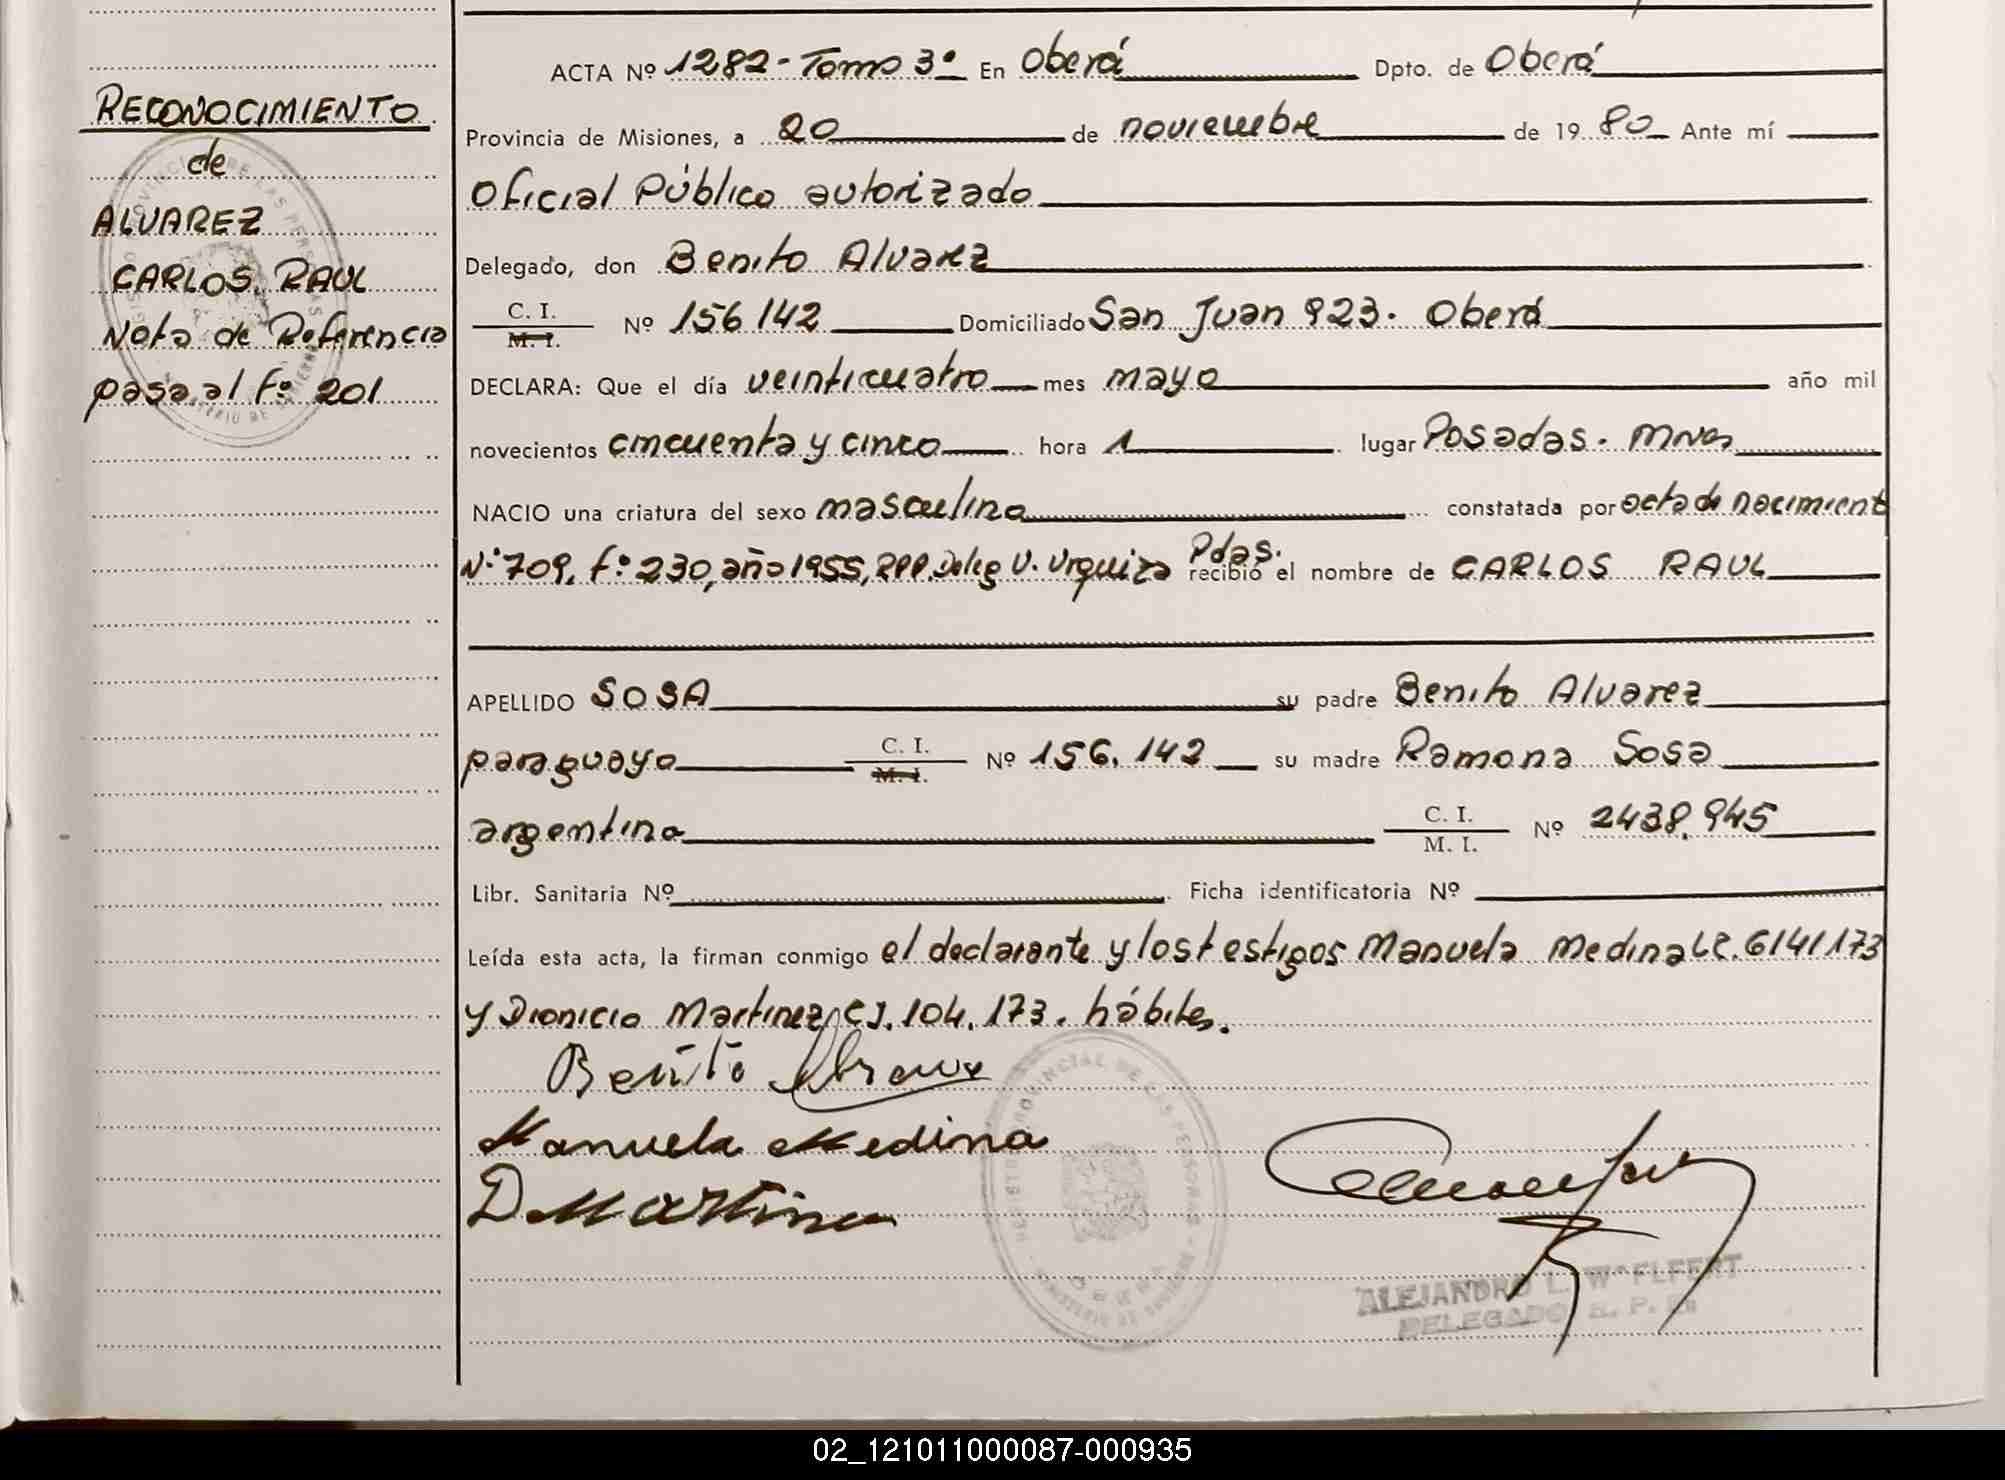 RECONOCIMIENTO
de
ALVAREZ
CARLOS RAUL
Nota de Referencia
pasa al Fº 201
ACTA Nº 1282-Tomo 3º En Oberá Dpto. de Oberá
Provincia de Misiones, a 20 de noviembre de 1980 Ante mí
Oficial Público autorizado
Delegado, don Benito Alvarez
C. I.
M. I. Nº 156142 Domiciliado San Juan 923. Oberá
DECLARA: Que el día veinticuatro mes mayo año mil
novecientos cincuenta y cinco hora 1 lugar Posadas. Mnes
NACIO una criatura del sexo masculino constatada por acta de nacimient
Nº 709, fº 230, año 1955, RPP. Deleg V. Urquiza Pdas. recibió el nombre de CARLOS RAUL
APELLIDO SOSA su padre Benito Alvarez
paraguayo C. I.
M. I. Nº 156.142 su madre Ramona Sosa
argentina C. I.
M. I. Nº 2438.945
Libr. Sanitaria Nº Ficha identificatoria Nº
Leída esta acta, la firman conmigo el declarante y los testigos Manuela Medina LC. 6141173
y Dionicio Martinez CI. 104.173. hábiles.
Benito Alvarez
Manuela Medina
D Martinez
REGISTRO PROVINCIAL DE LAS PERSONAS
OBERA
ALEJANDRO L. WELFERT
DELEGADO R. P. P.
02_121011000087-000935